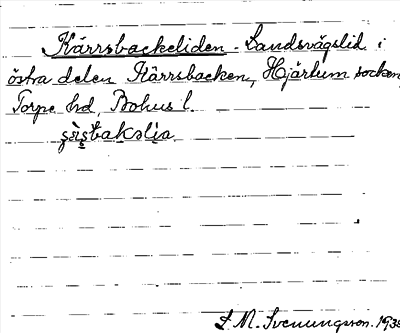 Kärrsbackeliden - Landsvägslid i
östra delen Kärrsbacken, Hjärtum socken,
Torpe hd, Bohus l.
S. M. Sveningsson. 193